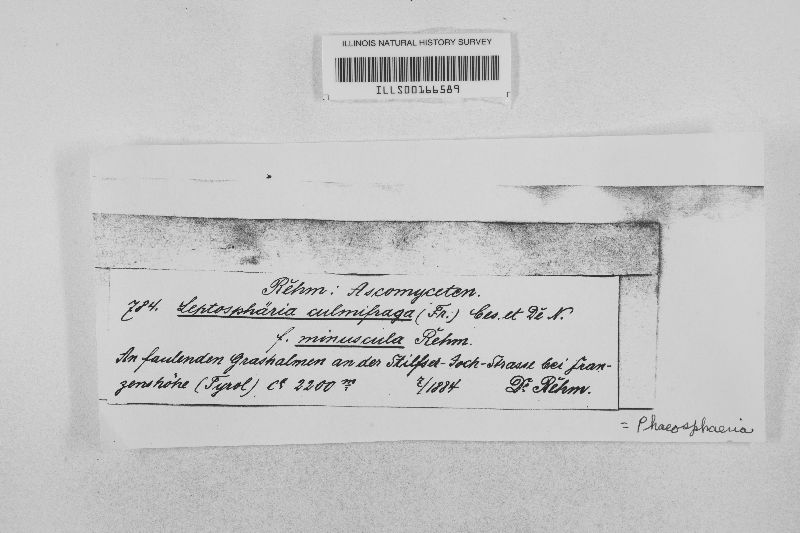 ILLINOIS NATURAL HISTORY SURVEY
ILLS00166589
Rehm: Ascomyceten.
784. Leptosphäria culmifraga (Fr.) Ces. et De N.
f. minuscula Rehm.
An faulenden Grashalmen an der Stilfser-Joch-Strasse bei Fran-
zenshöhe (Tyrol) ca 2200 m. 7/1884 Dr. Rehm.
= Phaeosphaeria